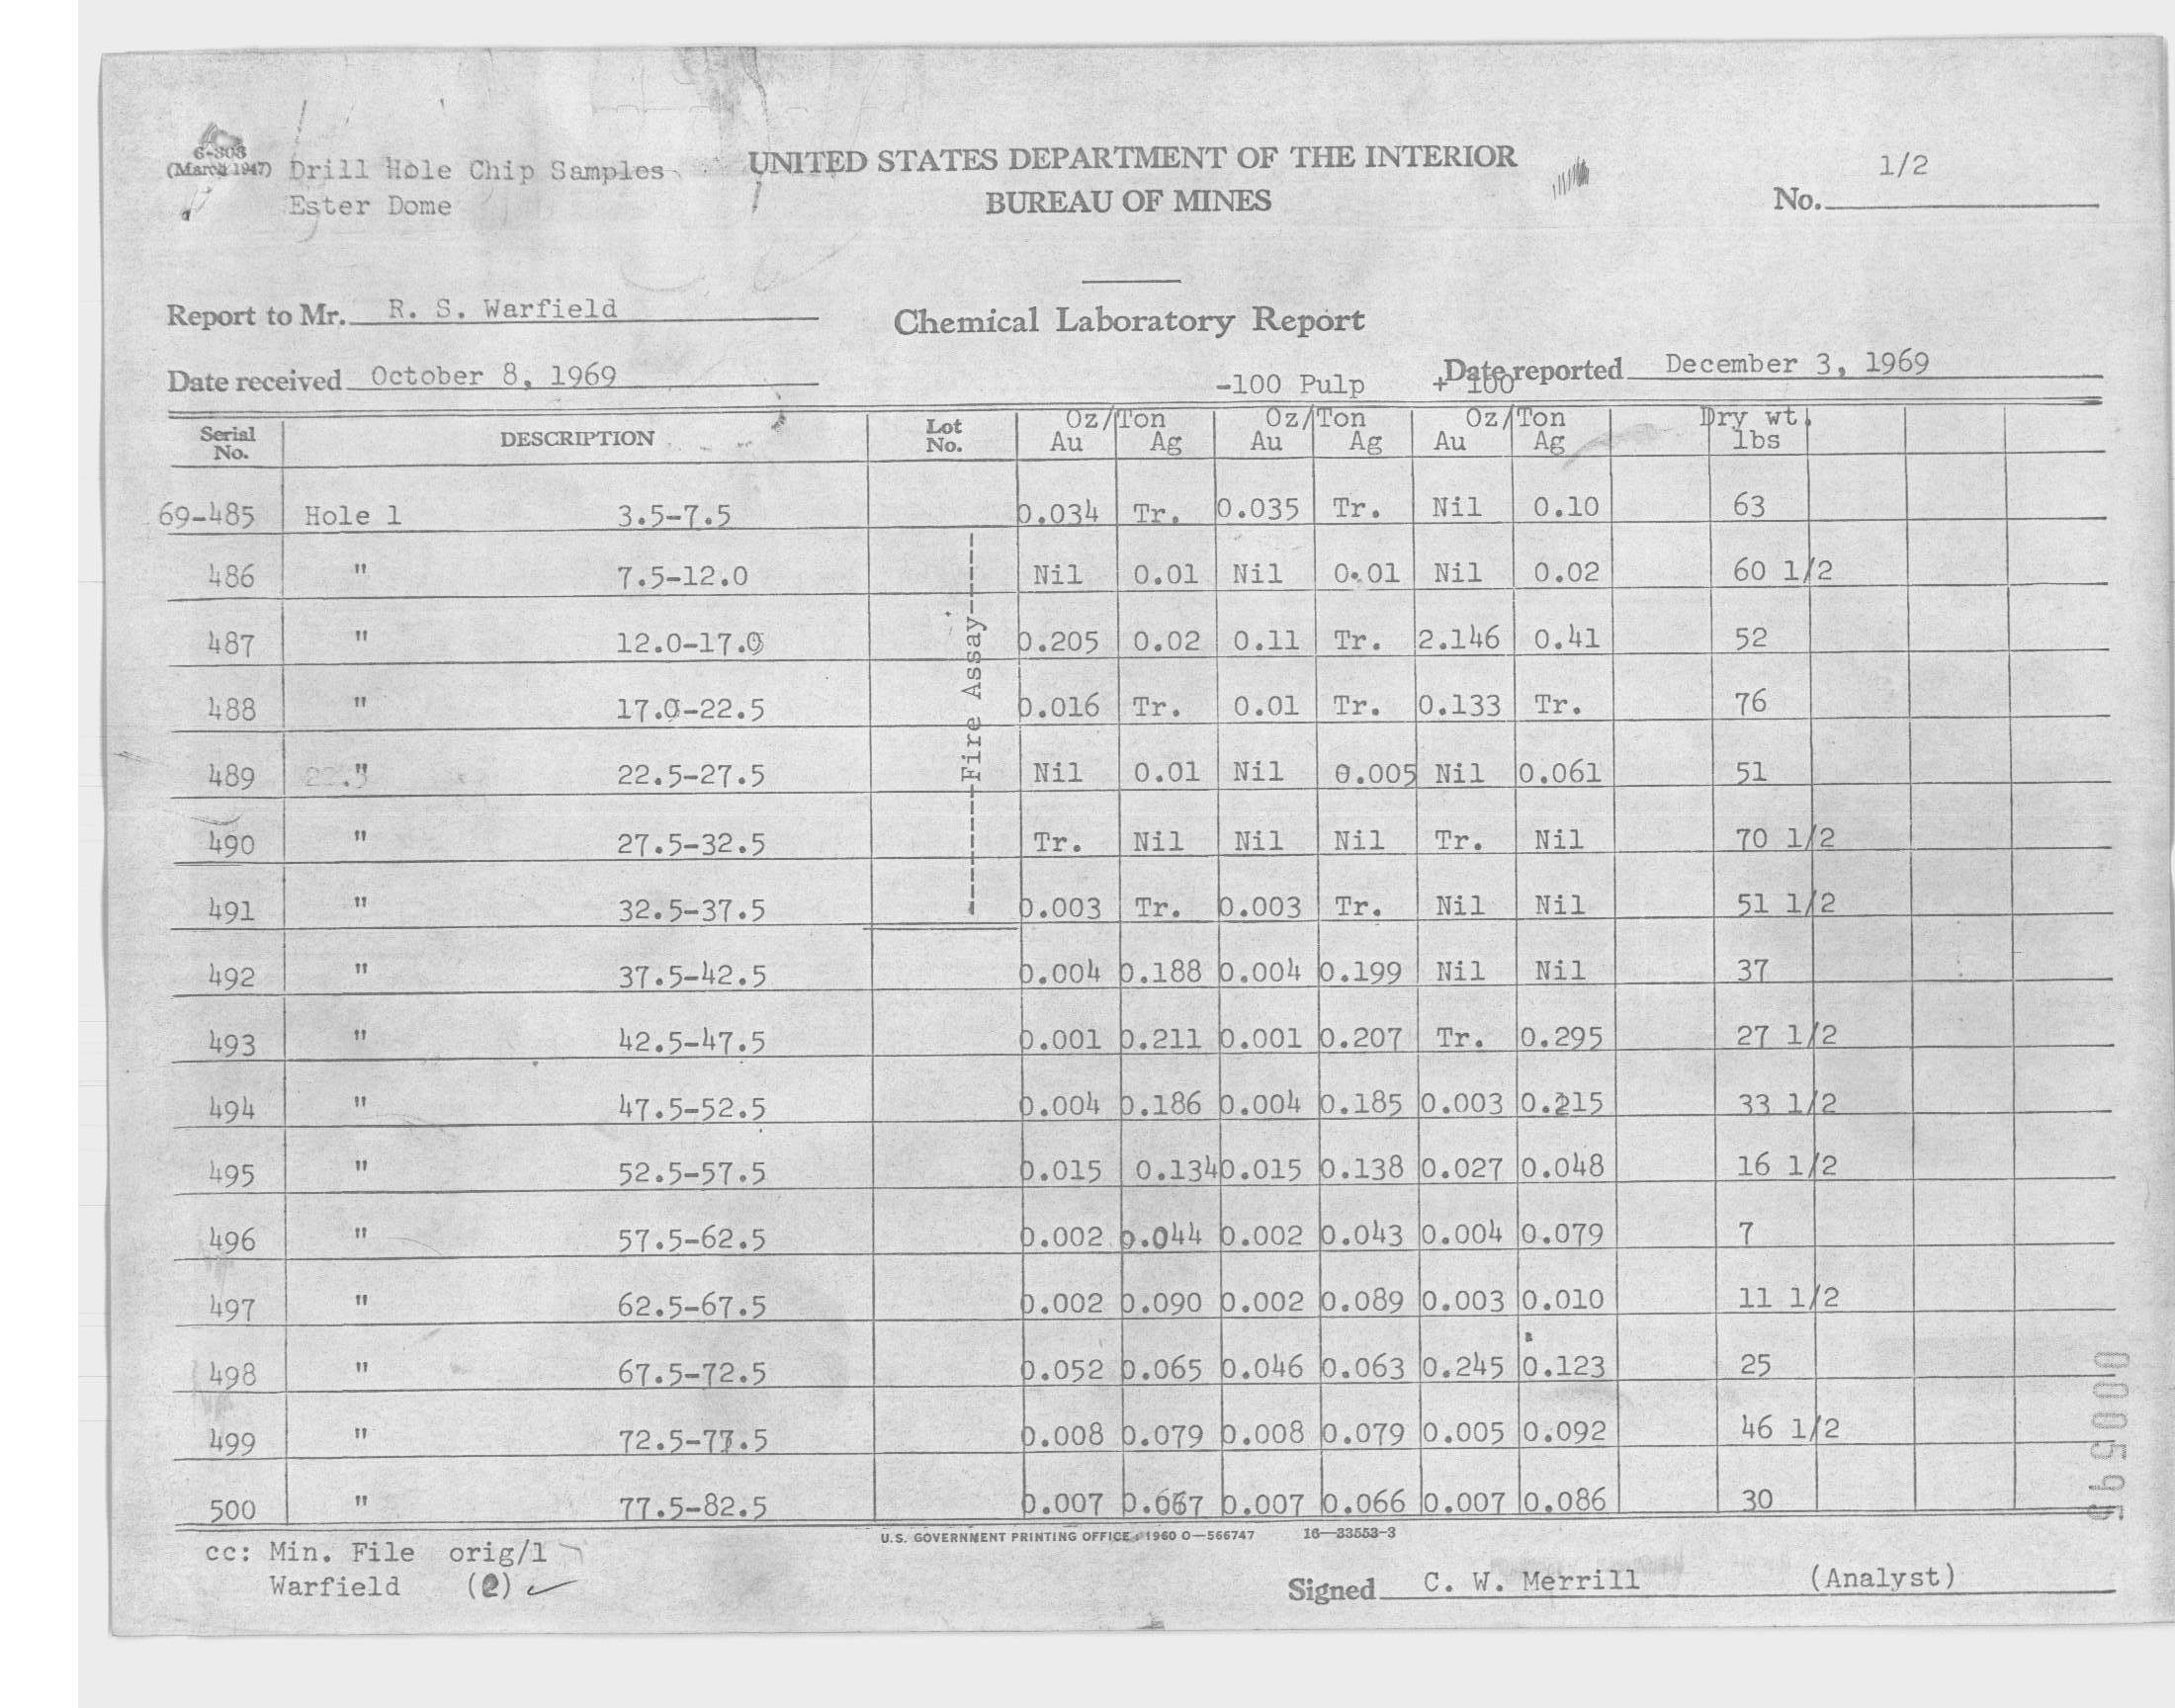 6-303
(March 1947) Drill Hole Chip Samples
Ester Dome
UNITED STATES DEPARTMENT OF THE INTERIOR
BUREAU OF MINES
No. 1/2
Report to Mr. R. S. Warfield
Chemical Laboratory Report
Date received October 8, 1969
Date reported December 3, 1969
-100 Pulp + 100
Serial No. DESCRIPTION Lot No. Oz/Ton Au Ag Oz/Ton Au Ag Oz/Ton Au Ag Dry wt. lbs
69-485 Hole 1 3.5-7.5 0.034 Tr. 0.035 Tr. Nil 0.10 63
486 " 7.5-12.0 Nil 0.01 Nil 0.01 Nil 0.02 60 1/2
487 " 12.0-17.0 0.205 0.02 0.11 Tr. 2.146 0.41 52
488 " 17.0-22.5 0.016 Tr. 0.01 Tr. 0.133 Tr. 76
489 " 22.5-27.5 Nil 0.01 Nil 0.005 Nil 0.061 51
490 " 27.5-32.5 Tr. Nil Nil Nil Tr. Nil 70 1/2
491 " 32.5-37.5 0.003 Tr. 0.003 Tr. Nil Nil 51 1/2
492 " 37.5-42.5 0.004 0.188 0.004 0.199 Nil Nil 37
493 " 42.5-47.5 0.001 0.211 0.001 0.207 Tr. 0.295 27 1/2
494 " 47.5-52.5 0.004 0.186 0.004 0.185 0.003 0.215 33 1/2
495 " 52.5-57.5 0.015 0.134 0.015 0.138 0.027 0.048 16 1/2
496 " 57.5-62.5 0.002 0.044 0.002 0.043 0.004 0.079 7
497 " 62.5-67.5 0.002 0.090 0.002 0.089 0.003 0.010 11 1/2
498 " 67.5-72.5 0.052 0.065 0.046 0.063 0.245 0.123 25
499 " 72.5-77.5 0.008 0.079 0.008 0.079 0.005 0.092 46 1/2
500 " 77.5-82.5 0.007 0.067 0.007 0.066 0.007 0.086 30
------Fire Assay----------
U.S. GOVERNMENT PRINTING OFFICE : 1960 O—566747 16—33553-3
cc: Min. File orig/1
Warfield (2)
Signed C. W. Merrill (Analyst)